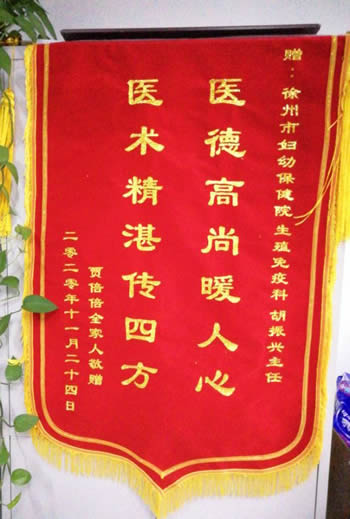 赠：徐州市妇幼保健院生殖免疫科 胡振兴主任
医德高尚暖人心
医术精湛传四方
贾倍倍全家人敬赠
二零二零年十一月二十四日